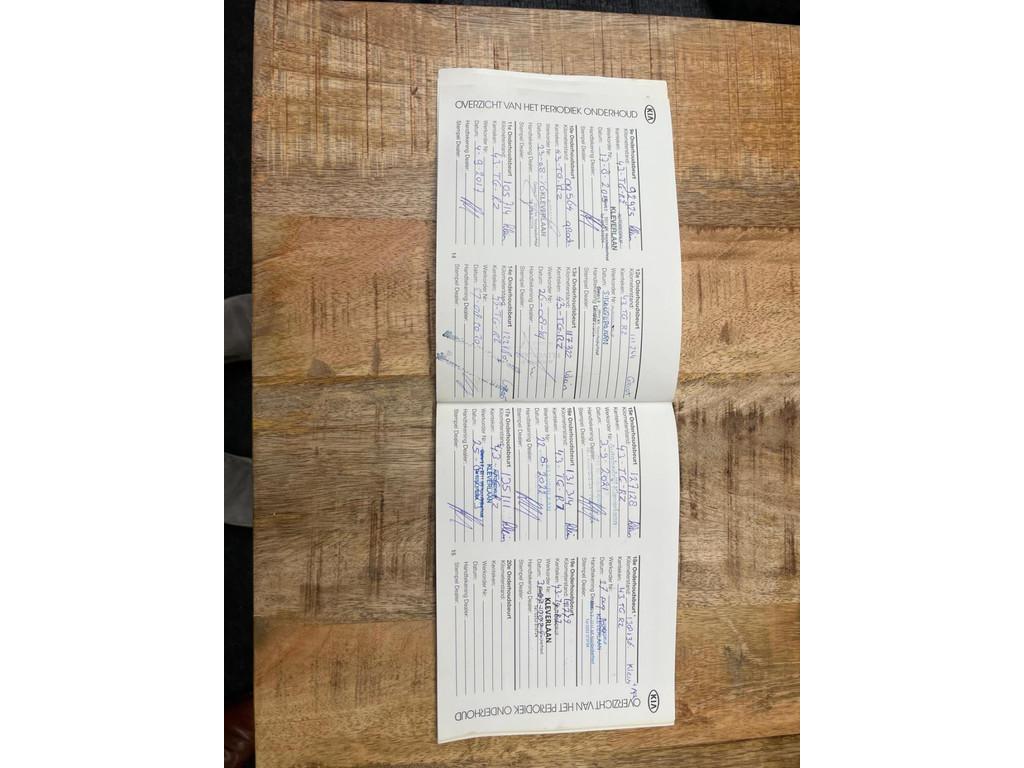 KIA
OVERZICHT VAN HET PERIODIEK ONDERHOUD
9e Onderhoudsbeurt
Kilometerstand: 92925 klein
Kenteken: 43-TG-RZ
Werkorder Nr:
KLEVERLAAN
Datum: 17-8-2015
Handtekening Dealer:
Stempel Dealer:
10e Onderhoudsbeurt
Kilometerstand: groot
Kenteken: 43-TG-RZ
Werkorder Nr:
Datum: 23-08-16 KLEVERLAAN
Handtekening Dealer:
Stempel Dealer:
11e Onderhoudsbeurt
Kilometerstand: 105714 klein
Kenteken: 43-TG-RZ
Werkorder Nr:
Datum: 4-9-2017
Handtekening Dealer:
Stempel Dealer:
12e Onderhoudsbeurt
Kilometerstand: 111244
Kenteken: 43 TG RZ
Werkorder Nr:
Datum:
Handtekening Dealer:
Stempel Dealer:
13e Onderhoudsbeurt
Kilometerstand: 117322 klein
Kenteken: 43-TG-RZ
Werkorder Nr:
Datum: 26-08-19
Handtekening Dealer:
Stempel Dealer:
14e Onderhoudsbeurt
Kilometerstand:
Kenteken: 43-TG-RZ
Werkorder Nr:
Datum:
Handtekening Dealer:
Stempel Dealer:
14
KIA
OVERZICHT VAN HET PERIODIEK ONDERHOUD
15e Onderhoudsbeurt
Kilometerstand: 127128 klein
Kenteken: 43-TG-RZ
Werkorder Nr:
Datum: 3-9-2021
Handtekening Dealer:
Stempel Dealer:
16e Onderhoudsbeurt
Kilometerstand: 131314 klein
Kenteken: 43-TG-RZ
Werkorder Nr:
Datum: 22-8-2022
Handtekening Dealer:
Stempel Dealer:
17e Onderhoudsbeurt
Kilometerstand: 135111 klein
Kenteken: 43
Werkorder Nr:
KLEVERLAAN
Datum: 25
Handtekening Dealer:
Stempel Dealer:
18e Onderhoudsbeurt
Kilometerstand: Klein
Kenteken: 43 TG RZ
Werkorder Nr:
Datum: 27 Aug
KLEVERLAAN
Handtekening Dealer:
Stempel Dealer:
19e Onderhoudsbeurt
Kilometerstand:
Kenteken: 43-TG-RZ
Werkorder Nr:
KLEVERLAAN
Datum:
Handtekening Dealer:
Stempel Dealer:
20e Onderhoudsbeurt
Kilometerstand:
Kenteken:
Werkorder Nr:
Datum:
Handtekening Dealer:
Stempel Dealer:
15